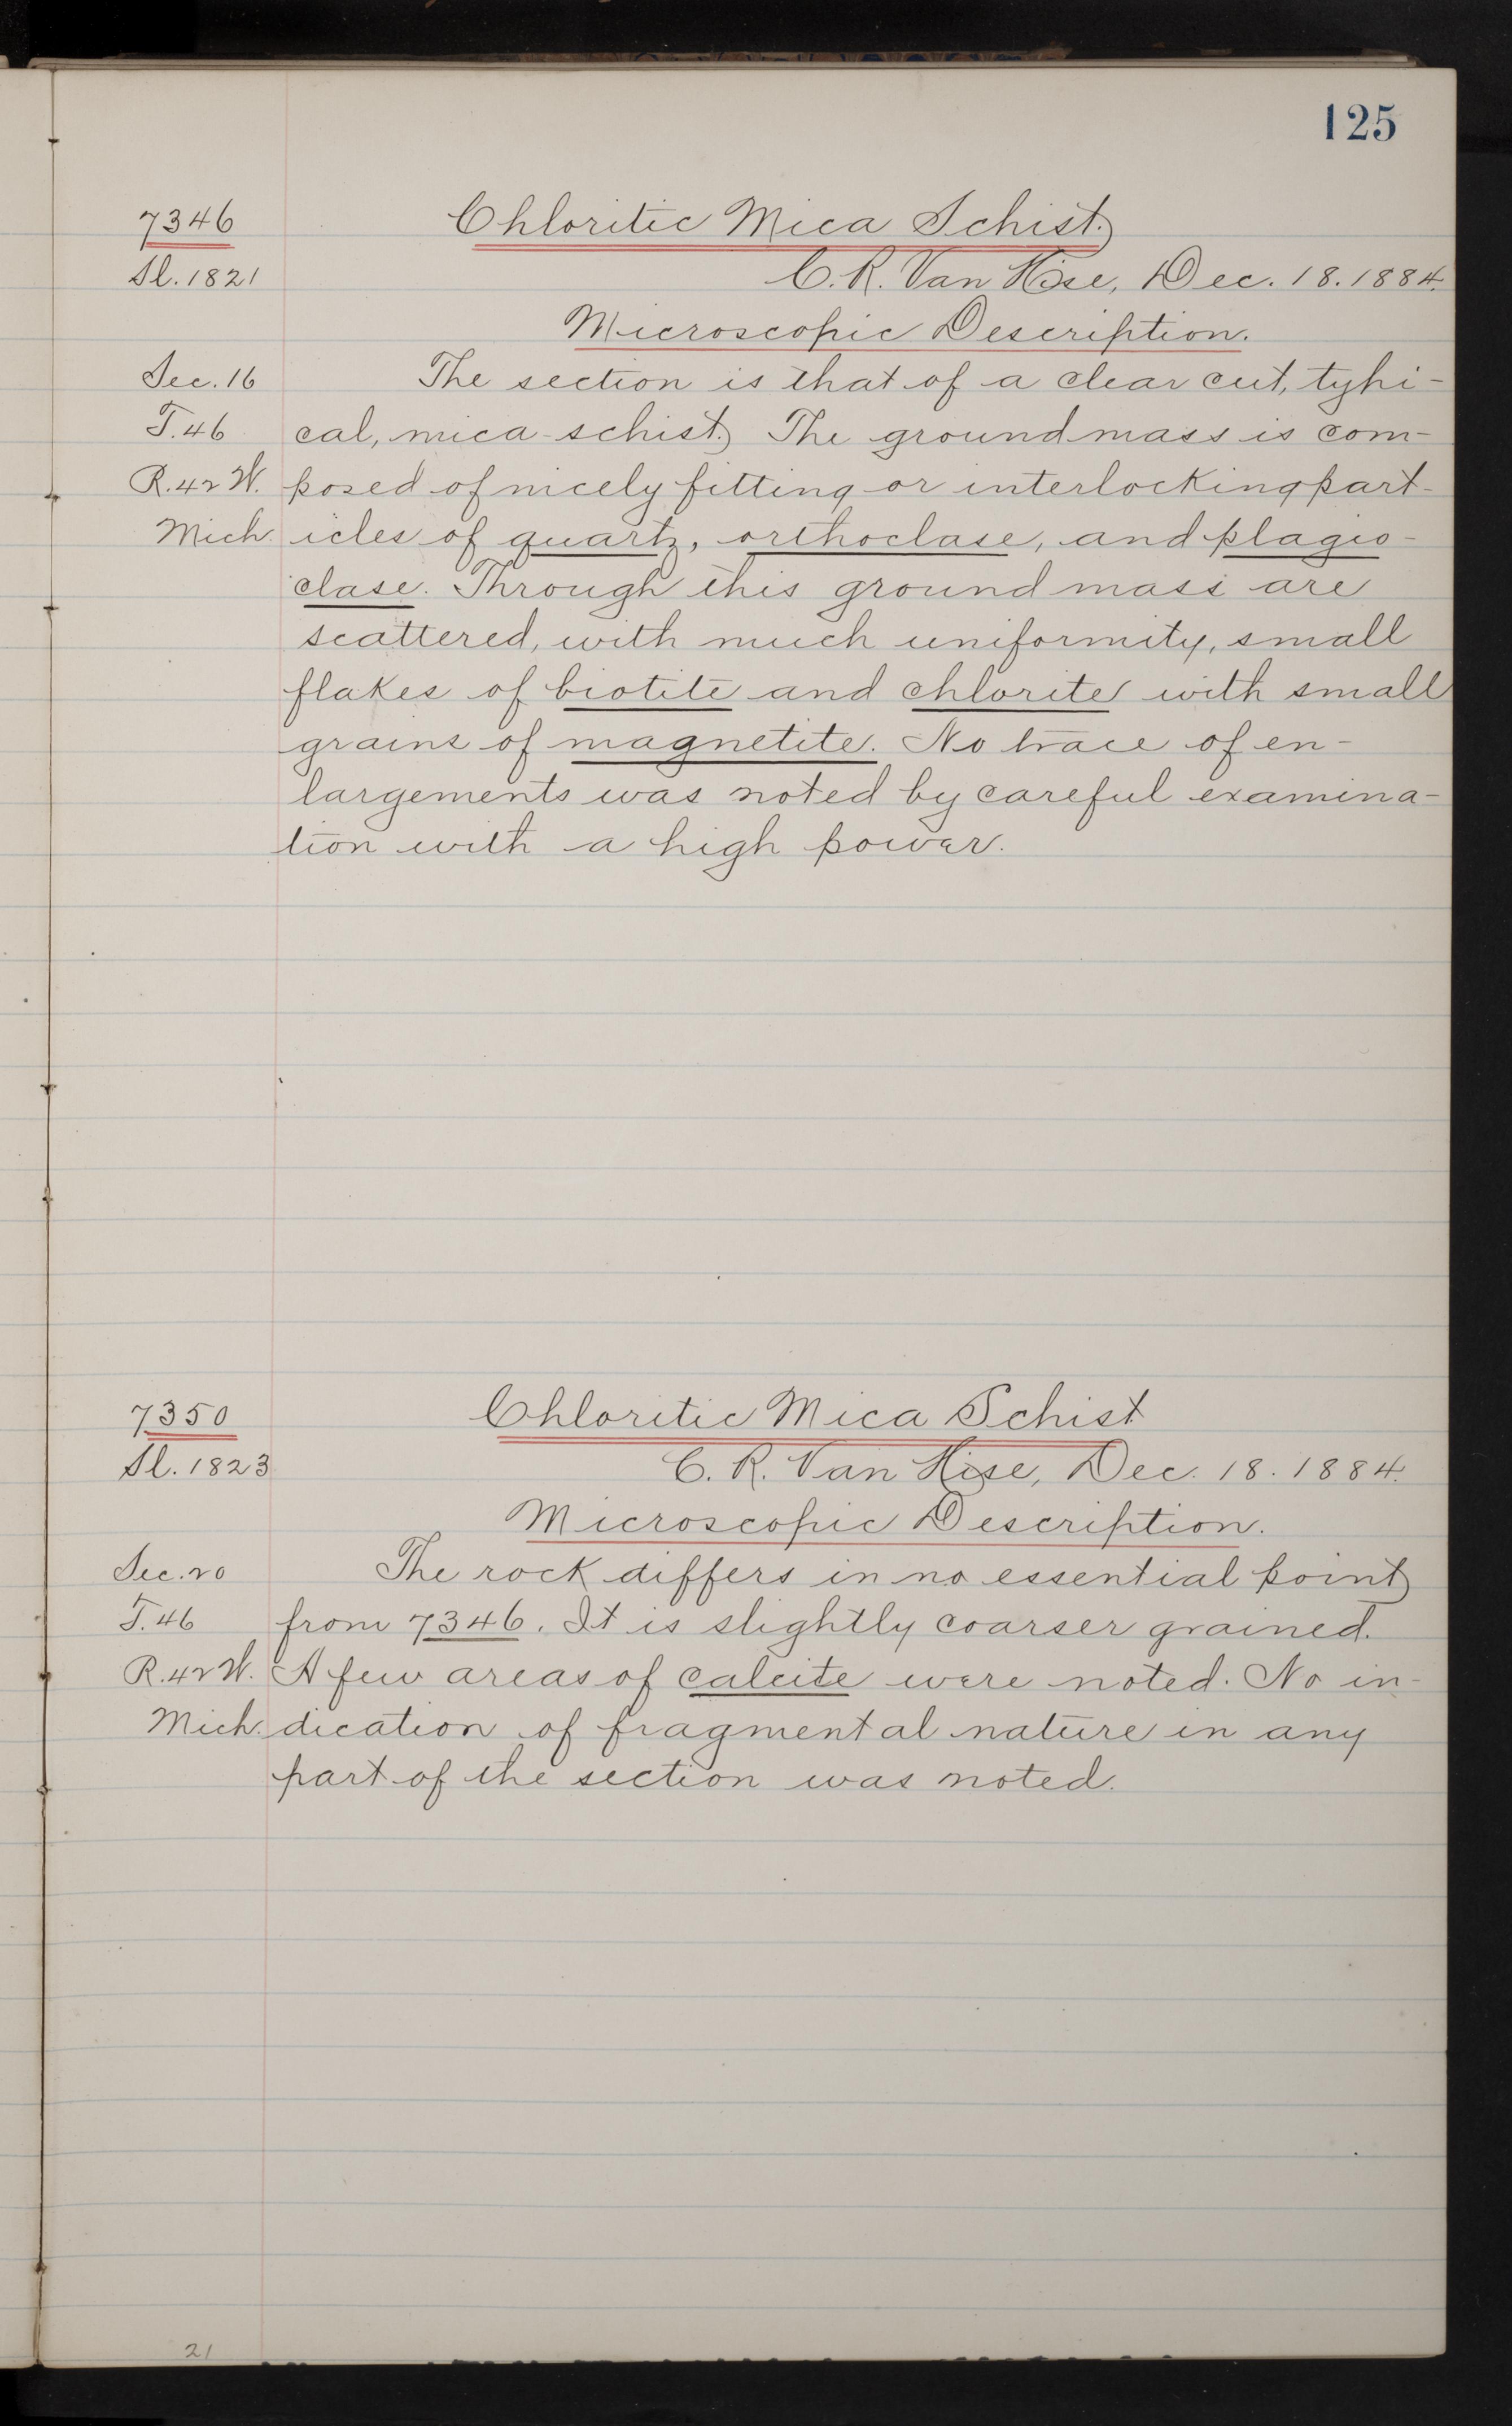 125
7346 Chloritic Mica Schist.
Sl. 1821 C. R. Van Hise, Dec. 18. 1884.
Microscopic Description.
Sec. 16 The section is that of a clear cut, typi-
T. 46 cal, mica-schist. The groundmass is com-
R. 42 W. posed of nicely fitting or interlocking part-
Mich. icles of quartz, orthoclase, and plagio-
clase. Through this groundmass are
scattered, with much uniformity, small
flakes of biotite and chlorite with small
grains of magnetite. No trace of en-
largements was noted by careful examina-
tion with a high power.
7350 Chloritic Mica Schist
Sl. 1823 C. R. Van Hise, Dec. 18. 1884.
Microscopic Description.
Sec. 20 The rock differs in no essential point
T. 46 from 7346. It is slightly coarser grained.
R. 42 W. A few areas of calcite were noted. No in-
Mich. dication of fragmental nature in any
part of the section was noted.
21